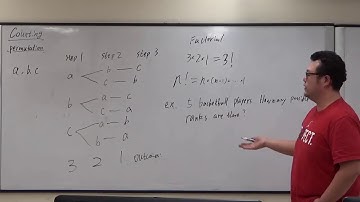 Counting
permutation
a, b, c
step 1 step 2 step 3
a b c
c b
b a c
c a
c a b
b a
3 2 1 outcomes
Factorial
3×2×1 = 3!
n! = n×(n-1)×...×1
ex. 5 basketball players. How many possible
ranks are there?